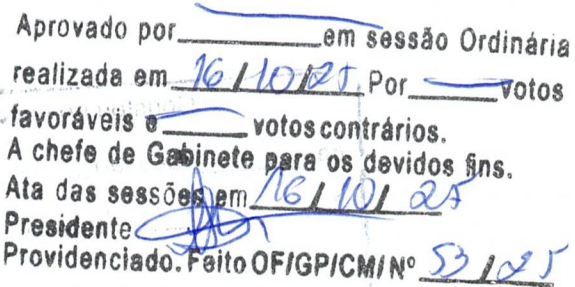 Aprovado por_________em sessão Ordinária
realizada em 16/10/25. Por______votos
favoráveis e______votos contrários.
A chefe de Gabinete para os devidos fins.
Ata das sessões em 16/10/25
Presidente
Providenciado. Feito OF/GP/CM/Nº 53/25